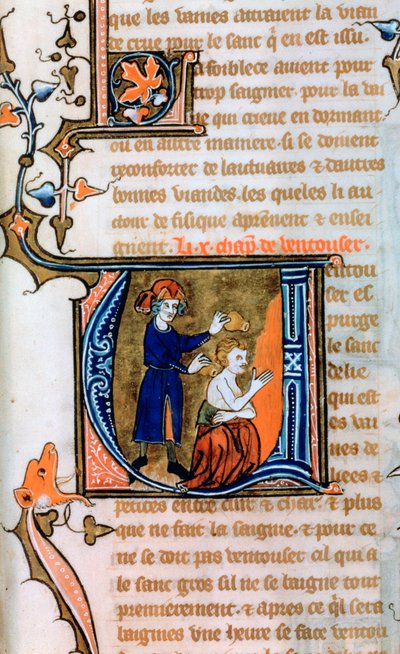 que les vaines atraient la vian
te crue pour le sanc q̃ en est issu.
La foiblece auient pour
trop saigner. pour la vai
ne qui crieue en dormant
ou en autre maniere. si se doiuent
reconforter de laituaires & dautres
bonnes viandes. les queles li au
ctour de fisique aprẽnent & ensei
gnent. Li .x. chap̃. de ventouser.
Ventou
ser es
purge
le sanc
delie
qui est
es vai
nes de
&
petites entre cuir & char. & plus
que ne fait la saignie. & pour ce
ne se doit pas ventouser cil qui a
le sanc gros sil ne se baigne tout
premierement. & apres ce q̃l sera
baignies vne heure se face ventou